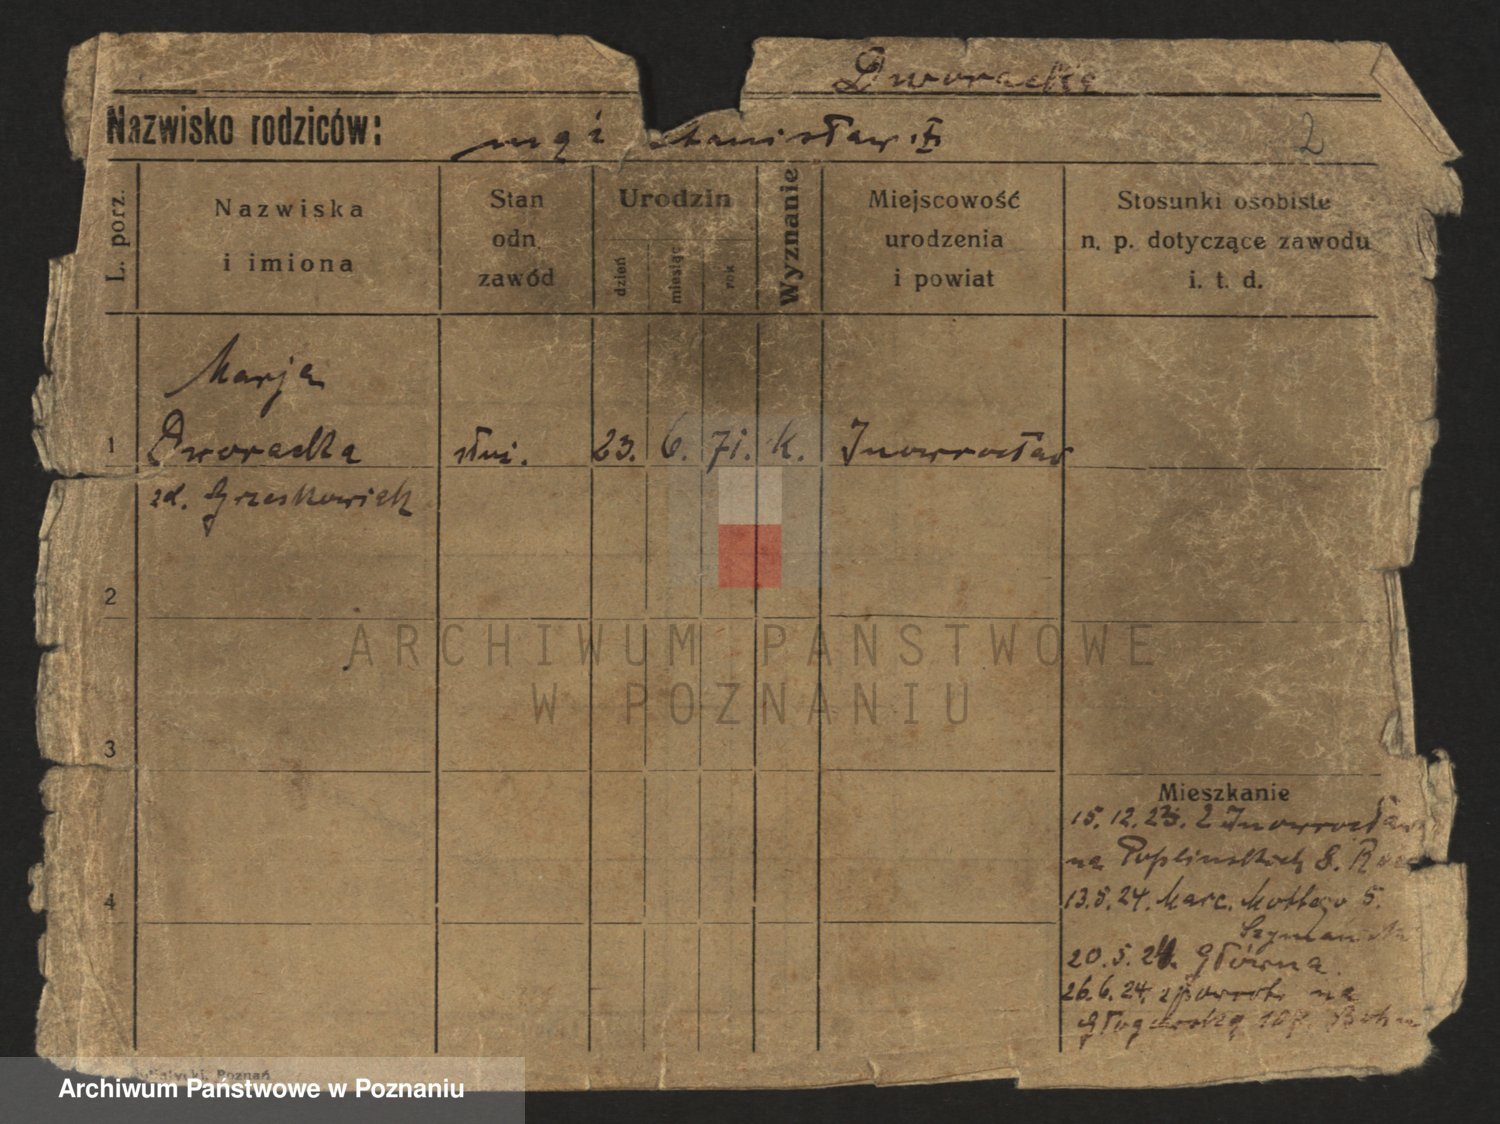 Dworacka
Nazwisko rodziców: mąż Stanisław
2
L. porz.
Nazwiska
i imiona
Stan
odn.
zawód
Urodzin
dzień
miesiąc
rok
Wyznanie
Miejscowość
urodzenia
i powiat
Stosunki osobiste
n. p. dotyczące zawodu
i. t. d.
Marja
1 Dworacka służ. 23. 6. 71. k. Inowrocław
zd. Grzeskowiak
2
ARCHIWUM PAŃSTWOWE
W POZNANIU
3
Mieszkanie
15. 12. 23. z Inowrocław
na Poplinskich 8.
4
13.5.24. Marc. Mottego 5.
20.5.24. Główna
26.6.24. zpowrot. na
Głogowską 107
Poznań
Archiwum Państwowe w Poznaniu